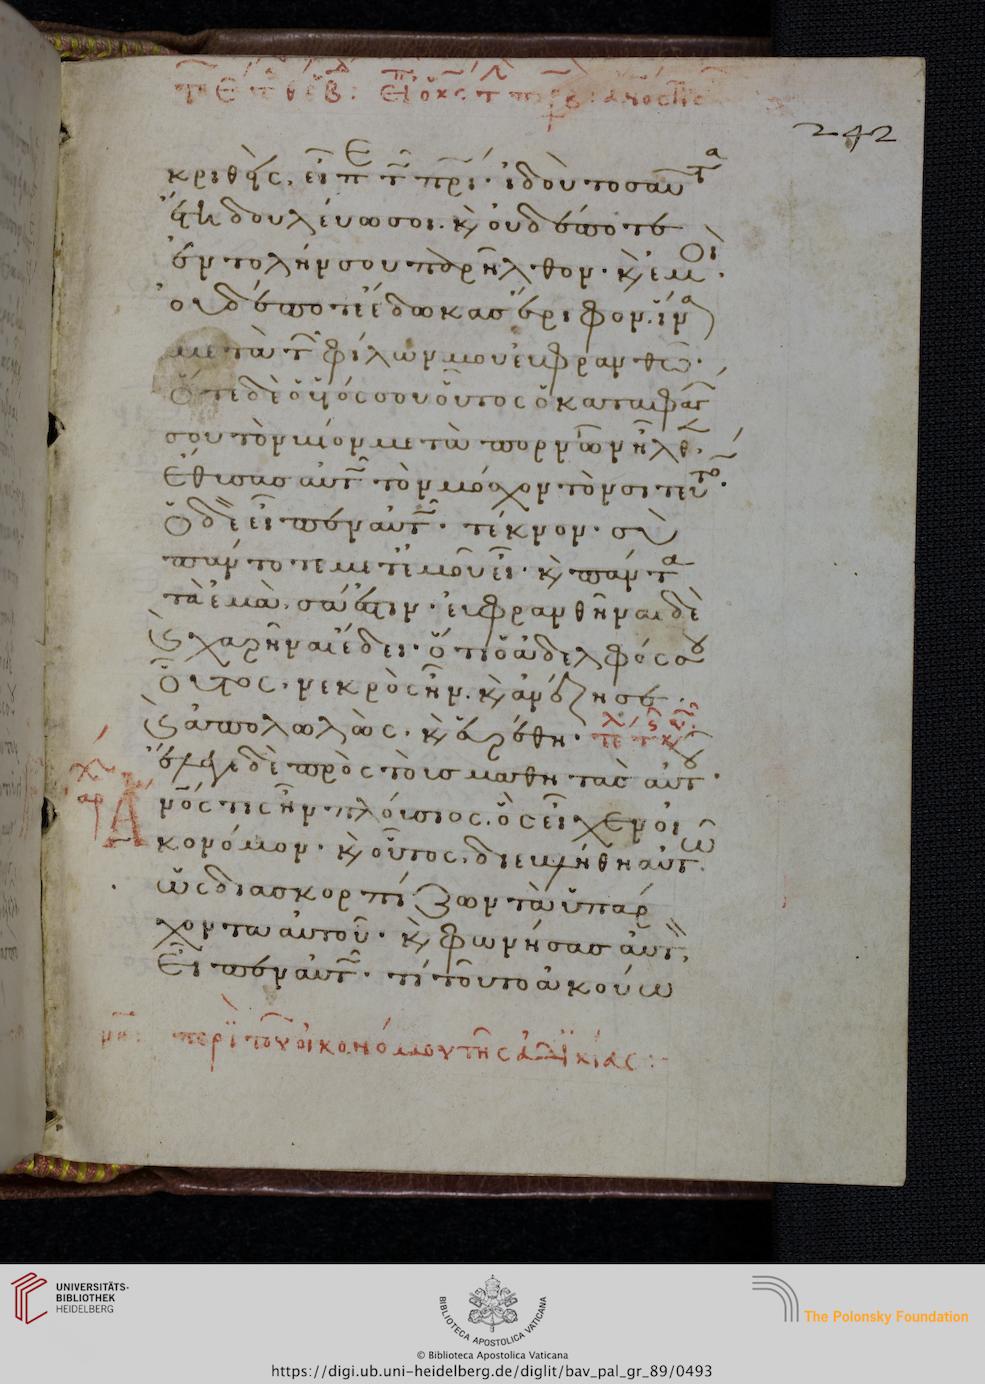 242
κριθεὶς, εἶπε τῷ πρί· ἰδοὺ τοσαῦτα
ἔτη δουλεύω σοι. κ̀ οὐδέποτε
ἐντολήν σου παρῆλθον· κ̀ ἐμοὶ.
οὐδέποτε ἔδωκας ἔριφον. ἵνα
μετὰ τῶν φίλων μου εὐφρανθῶ·
ὅτε δὲ ὁ υἱός σου οὗτος ὁ καταφαγών
σου τὸν βίον μετὰ πορνῶν ἦλθεν.
ἔθυσας αὐτῷ τὸν μόσχον τὸν σιτευτόν.
ὁ δὲ εἶπεν αὐτῷ· τέκνον· σὺ
πάντοτε μετ' ἐμοῦ εἶ· κ̀ πάντα
τὰ ἐμὰ, σά ἐστιν· εὐφρανθῆναι δὲ
κ̀ χαρῆναι ἔδει· ὅτι ὁ ἀδελφός σου
οὗτος, νεκρὸς ἦν. κ̀ ἀνέζησε.
κ̀ ἀπολωλὼς· κ̀ εὑρέθη· τε τ κυ
ἔλεγε δὲ πρὸς τοὺς μαθητὰς αὐτοῦ·
ἄνος τις ἦν πλούσιος. ὃς εἶχεν οἰ
κονόμον· κ̀ οὗτος, διεβλήθη αὐτῷ.
ὡς διασκορπίζων τὰ ὑπάρ
χοντα αὐτοῦ· κ̀ φωνήσας αὐτὸν,
εἶπεν αὐτῷ· τί τοῦτο ἀκούω
περὶ τοῦ οἰκονόμου τῆς ἀδικίας:
UNIVERSITÄTS-
BIBLIOTHEK
HEIDELBERG
BIBLIOTECA APOSTOLICA VATICANA
The Polonsky Foundation
© Biblioteca Apostolica Vaticana
https://digi.ub.uni-heidelberg.de/diglit/bav_pal_gr_89/0493